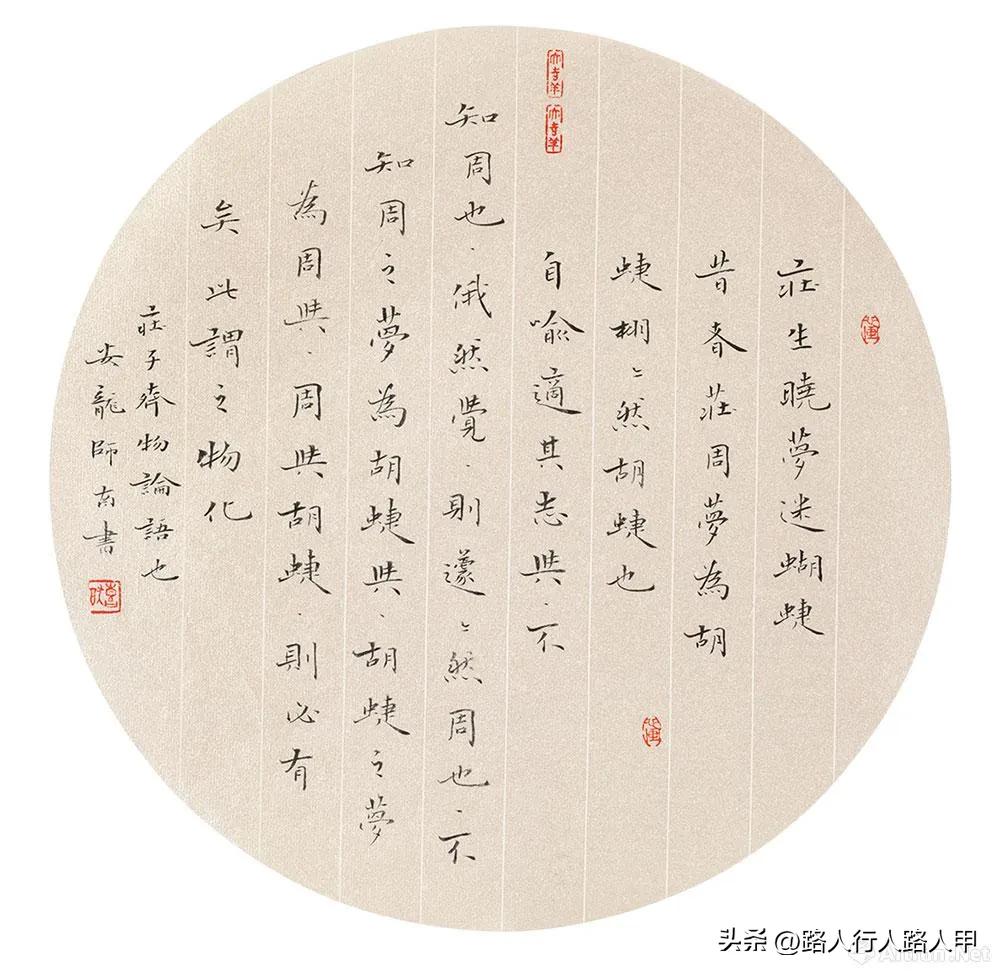 莊生曉夢迷蝴蜨
昔者莊周夢為胡
蜨栩〻然胡蜨也
自喻適其志與、不
知周也、俄然覺、則蘧〻然周也、不
知周之夢為胡蜨與、胡蜨之夢
為周與、周與胡蜨、則必有
矣此謂之物化
莊子齊物論語也
龍師書
头条 @路人行人路人甲
Artron.Net